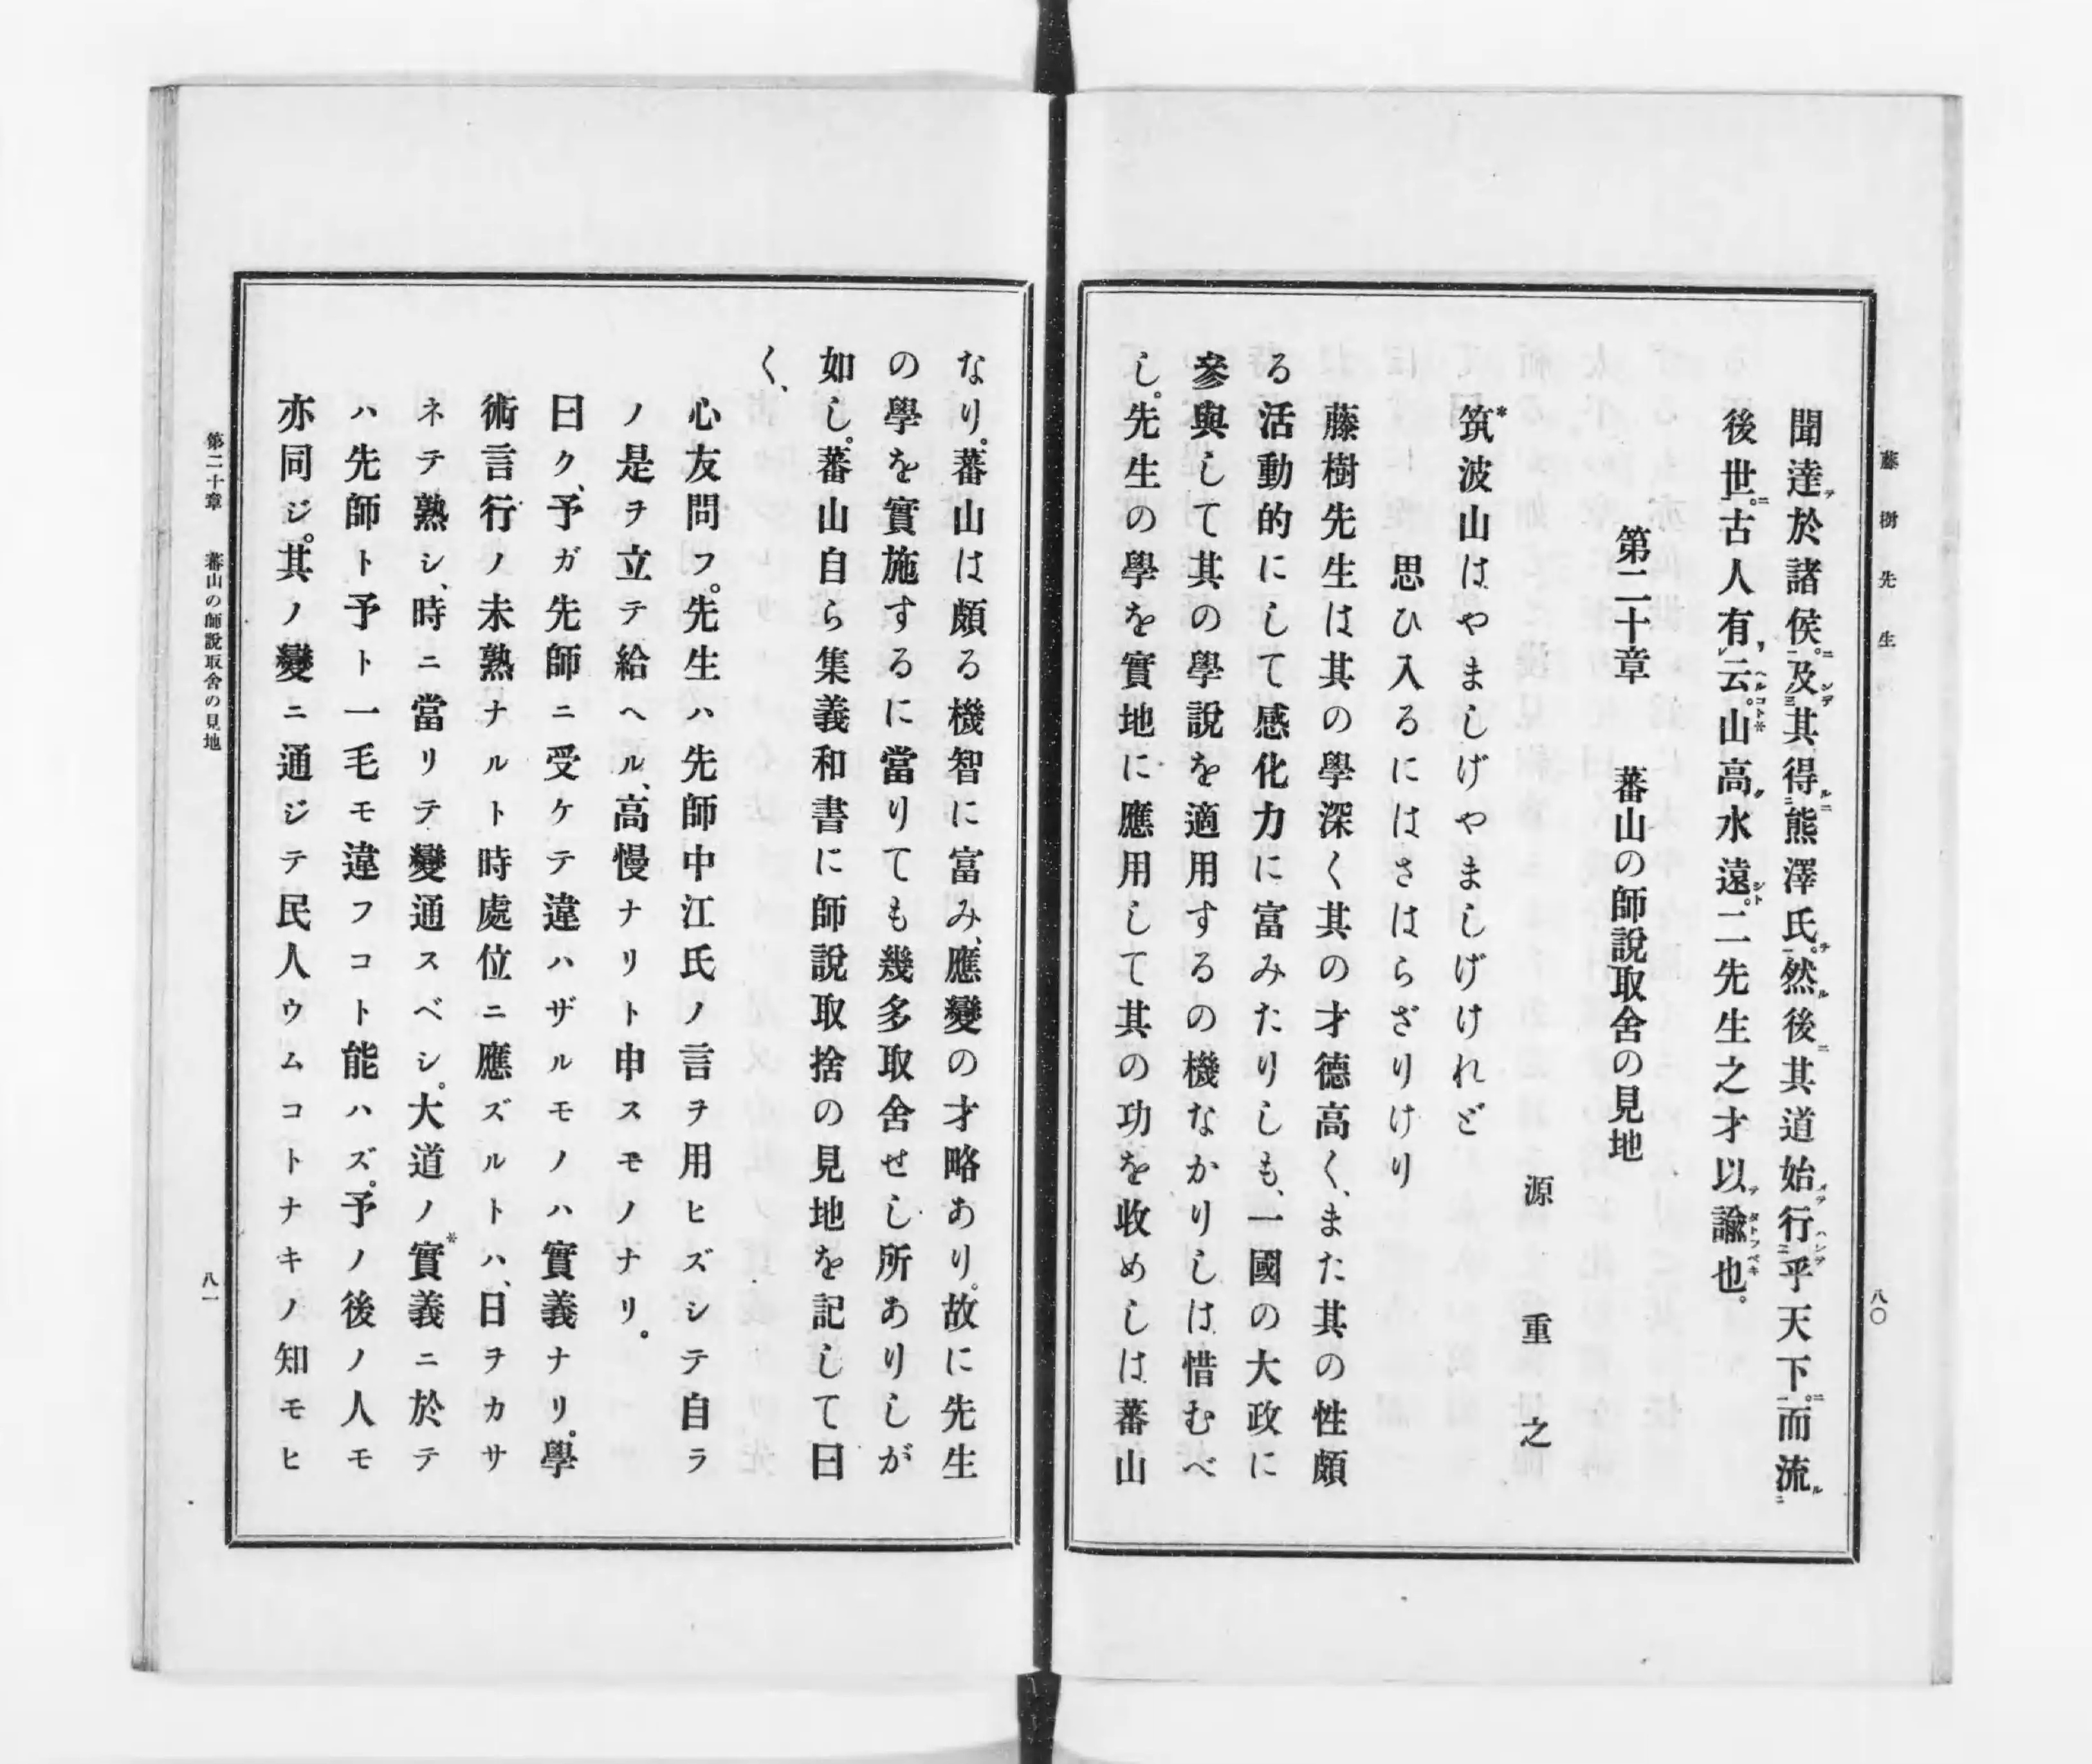 藤樹先生
八〇
聞達於諸侯。及其得熊澤氏。然後其道始行乎天下。而流
後世。古人有云。山高水遠。二先生之才以諭也。
第二十章　蕃山の師說取舍の見地
源重之
筑波山はやましげやましげけれど
思ひ入るにはさはらざりけり
藤樹先生は其の學深く其の才德高く、また其の性頗
る活動的にして感化力に富みたりしも、一國の大政に
參與して其の學說を適用するの機なかりしは惜むべ
し。先生の學を實地に應用して其の功を收めしは蕃山
なり。蕃山は頗る機智に富み、應變の才略あり。故に先生
の學を實施するに當りても幾多取舍せし所ありしが
如し。蕃山自ら集義和書に師說取捨の見地を記して曰
く、
心友問フ。先生ハ先師中江氏ノ言ヲ用ヒズシテ自ラ
ノ是ヲ立テ給ヘル、高慢ナリト申スモノナリ。
曰ク、予ガ先師ニ受ケテ違ハザルモノハ實義ナリ。學
術言行ノ未熟ナルト時處位ニ應ズルトハ、日ヲカサ
ネテ熟シ、時ニ當リテ變通スベシ。大道ノ*實義ニ於テ
ハ先師ト予ト一毛モ違フコト能ハズ。予ノ後ノ人モ
亦同ジ。其ノ變ニ通ジテ民人ウムコトナキノ知モヒ
第二十章　蕃山の師說取舍の見地
八一